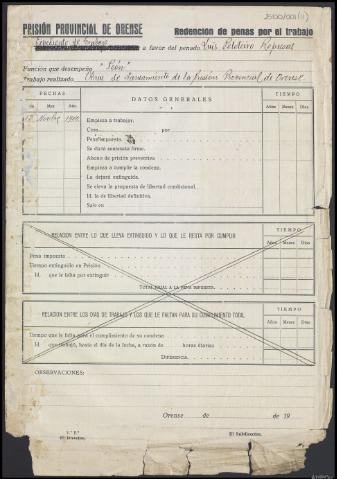 PRISIÓN PROVINCIAL DE ORENSE
Redención de penas por el trabajo
a favor del penado Luis
Función que desempeña "Peón"
Trabajo realizado Obras de Saneamiento de la Prisión Provincial de Orense
FECHAS
Mes Año
DATOS GENERALES
TIEMPO
Años Meses Días
Empieza a trabajar.
por
Se dicta sentencia firme.
Abono de prisión preventiva
Empieza a cumplir la condena
La dejará extinguida.
Se eleva la propuesta de libertad condicional.
Id. la de libertad definitiva.
Sale en
RELACION ENTRE LO QUE LLEVA EXTINGUIDO Y LO QUE LE RESTA POR CUMPLIR
TIEMPO
Años Meses Días
Pena impuesta
Tiempo extinguido en Prisión
Id. que le falta por extinguir
TOTAL IGUAL A LA PENA IMPUESTA
RELACION ENTRE LOS DIAS DE TRABAJO Y LOS QUE LE FALTAN PARA SU CUMPLIMIENTO TOTAL
TIEMPO
Años Meses Días
Tiempo que le falta para el cumplimiento de su condena
Id. que trabajó, hasta el día de la fecha, a razón de horas diarias
DIFERENCIA
OBSERVACIONES:
Orense de de 19
V.º B.º
El Director,
El Subdirector,